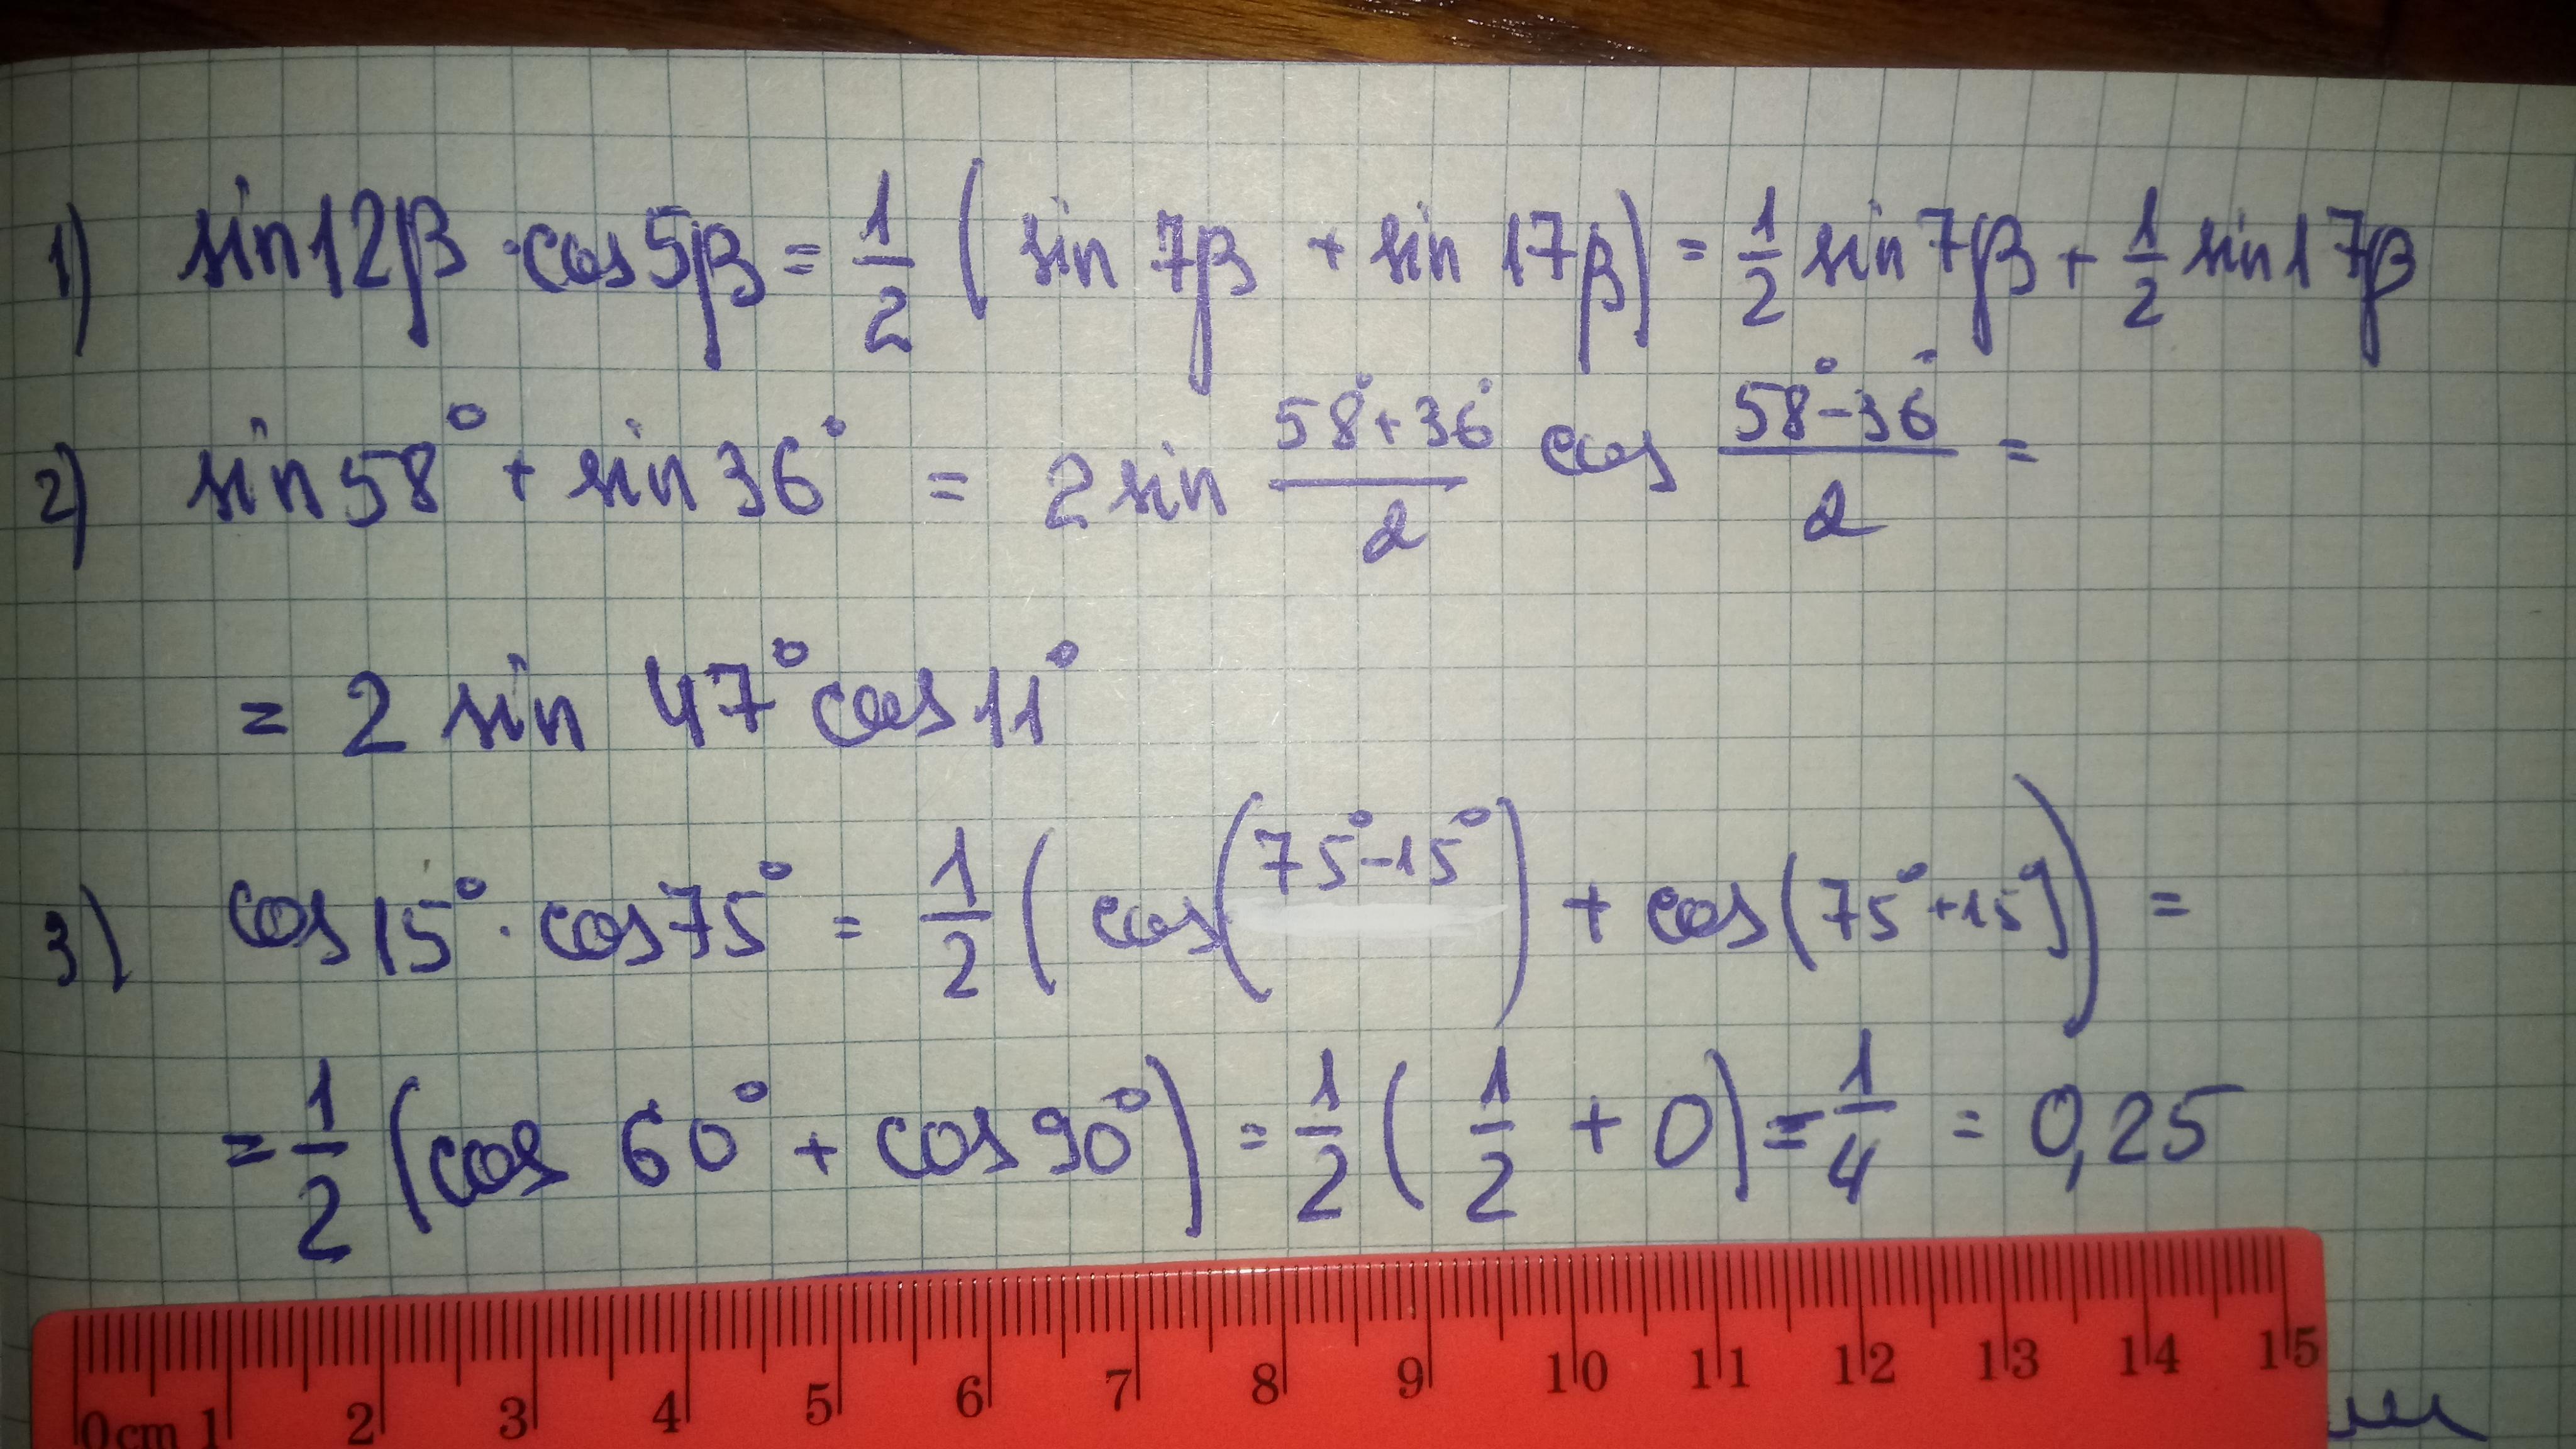 1) sin12β · cos5β = 1/2 ( sin 7β + sin 17β) = 1/2 sin7β + 1/2 sin17β
2) sin58° + sin36° = 2 sin 58°+36°/2 cos 58°-36°/2 =
= 2 sin 47° cos11°
3) cos15° · cos75° = 1/2 (cos(75°-15°) + cos(75°+15°)) =
= 1/2 (cos 60° + cos90°) = 1/2 ( 1/2 + 0) = 1/4 = 0,25
0cm 1 2 3 4 5 6 7 8 9 10 11 12 13 14 15